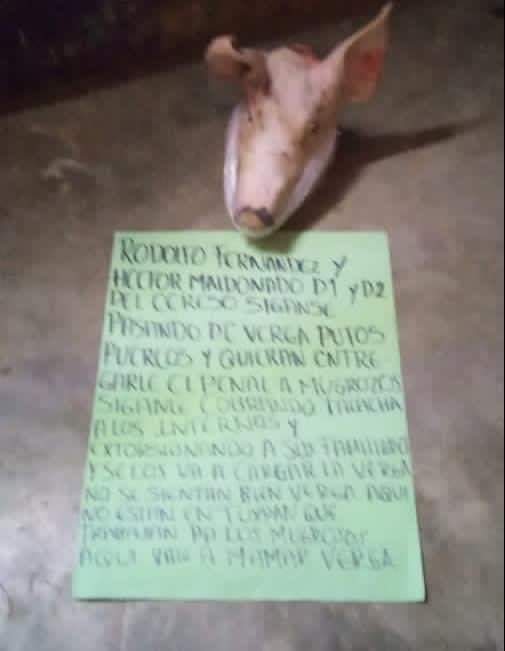 RODOLFO FERNANDEZ Y
HECTOR MALDONADO D1 Y D2
DEL CERESO SIGANSE
PASANDO DE VERGA PUTOS
PUERCOS Y QUIERAN ENTRE
GARLE EL PENAL A MUGROZOS
SIGANLE COBRANDO TALACHA
A LOS INTERNOS Y
EXTORSIONANDO A SUS FAMILIAS
Y SE LOS VA A CARGAR LA VERGA
NO SE SIENTAN BIEN VERGA AQUI
NO ESTAN EN TUXPAN QUE
TRABAJAN PA LOS MUGROSOS
AQUI VAN A MAMAR VERGA